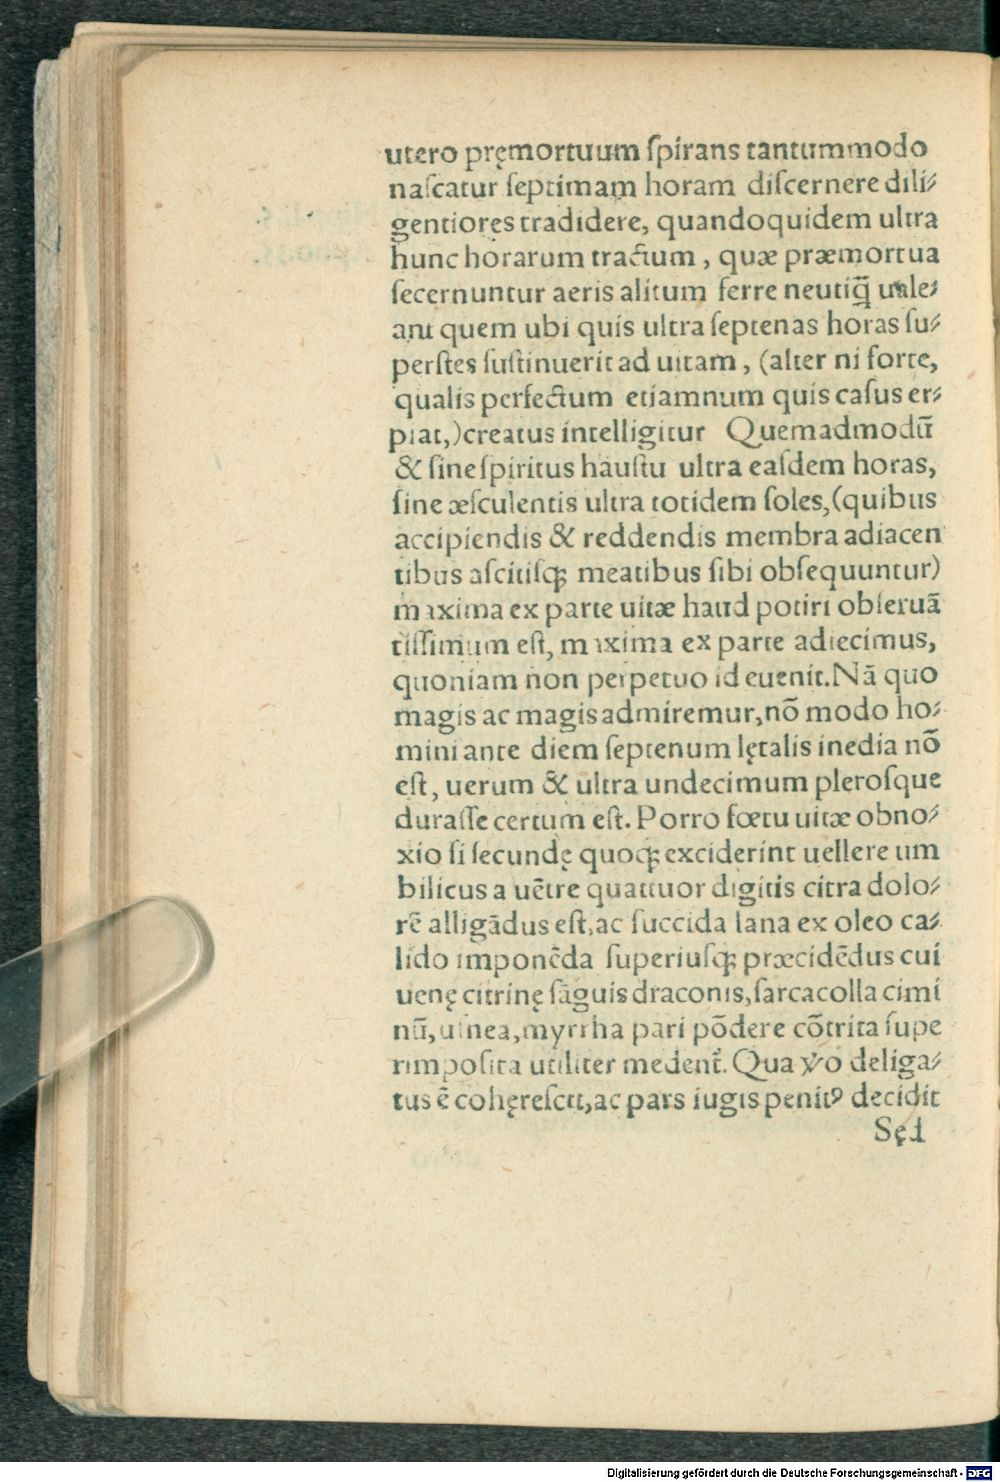 utero pręmortuum ſpirans tantummodo
naſcatur ſeptimam horam diſcernere dili⸗
gentiores tradidere, quandoquidem ultra
hunc horarum tractum, quæ præmortua
ſecernuntur aeris alitum ferre neutiq̃ uale⸗
ant quem ubi quis ultra ſeptenas horas ſu⸗
perſtes ſuſtinuerit ad uitam, (alter ni forte,
qualis perfectum etiamnum quis caſus er⸗
piat,) creatus intelligitur Quemadmodũ
& ſine ſpiritus hauſtu ultra eaſdem horas,
ſine æſculentis ultra totidem ſoles, (quibus
accipiendis & reddendis membra adiacen
tibus aſcitiſq; meatibus ſibi obſequuntur)
maxima ex parte uitæ haud potiri obſeruã
tiſſimum eſt, maxima ex parte adiecimus,
quoniam non perpetuo id euenit. Nã quo
magis ac magis admiremur, nõ modo ho⸗
mini ante diem ſeptenum lętalis inedia nõ
eſt, uerum & ultra undecimum pleroſque
duraſſe certum eſt. Porro fœtu uitæ obno⸗
xio ſi ſecundę quoq; exciderint uellere um
bilicus a uẽtre quattuor digitis citra dolo⸗
rẽ alligãdus eſt, ac ſuccida lana ex oleo ca⸗
lido imponẽda ſuperiuſq; præcidẽdus cui
uenę citrinę ſãguis draconis, ſarcacolla cimi
nũ, uſnea, myrrha pari põdere cõtrita ſupe
rimpoſita utiliter medent᷑. Qua ꝟo deliga⸗
tus ẽ cohęreſcit, ac pars iugis penitꝰ decidit
Sęd
Digitalisierung gefördert durch die Deutsche Forschungsgemeinschaft - DFG